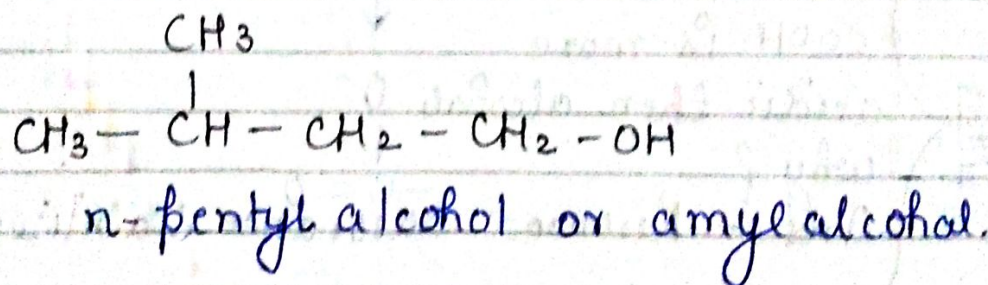 CH3
|
CH3 — CH — CH2 — CH2 - OH
n-pentyl alcohol or amyl alcohal.